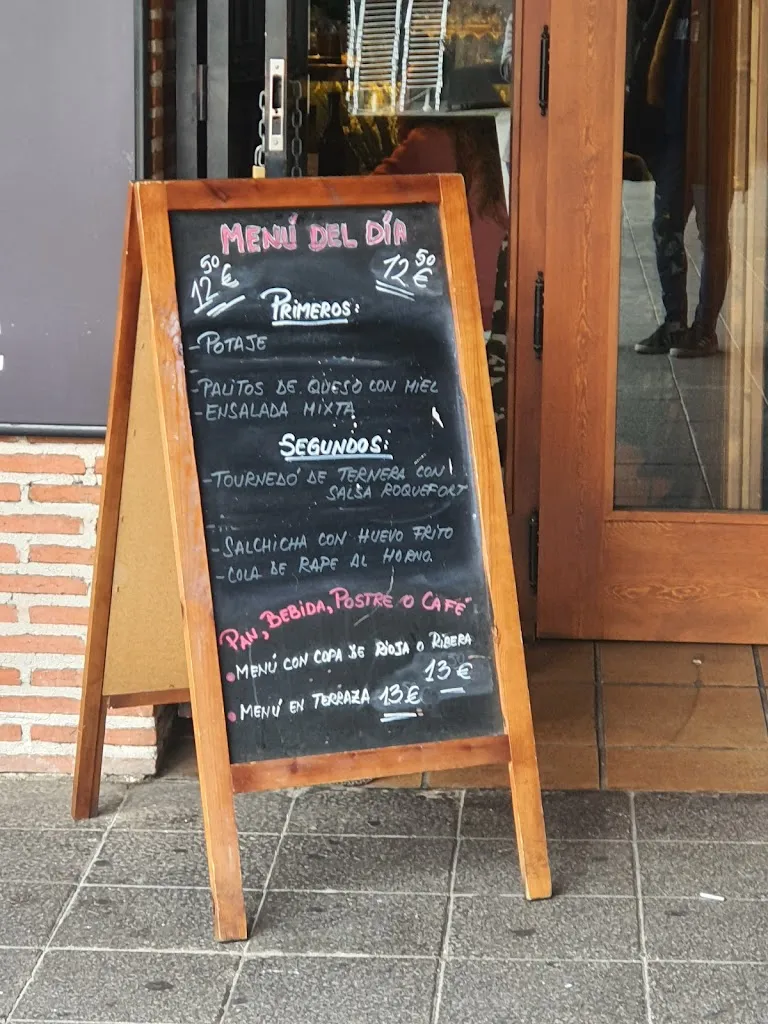 MENÚ DEL DÍA
12,50 € 12,50 €
PRIMEROS:
-POTAJE
-PALITOS DE QUESO CON MIEL
-ENSALADA MIXTA
SEGUNDOS:
-TOURNEDÓ DE TERNERA CON
SALSA ROQUEFORT
-SALCHICHA CON HUEVO FRITO
-COLA DE RAPE AL HORNO.
PAN, BEBIDA, POSTRE O CAFÉ
• MENÚ CON COPA DE RIOJA O RIBERA
13 €
• MENÚ EN TERRAZA 13 €